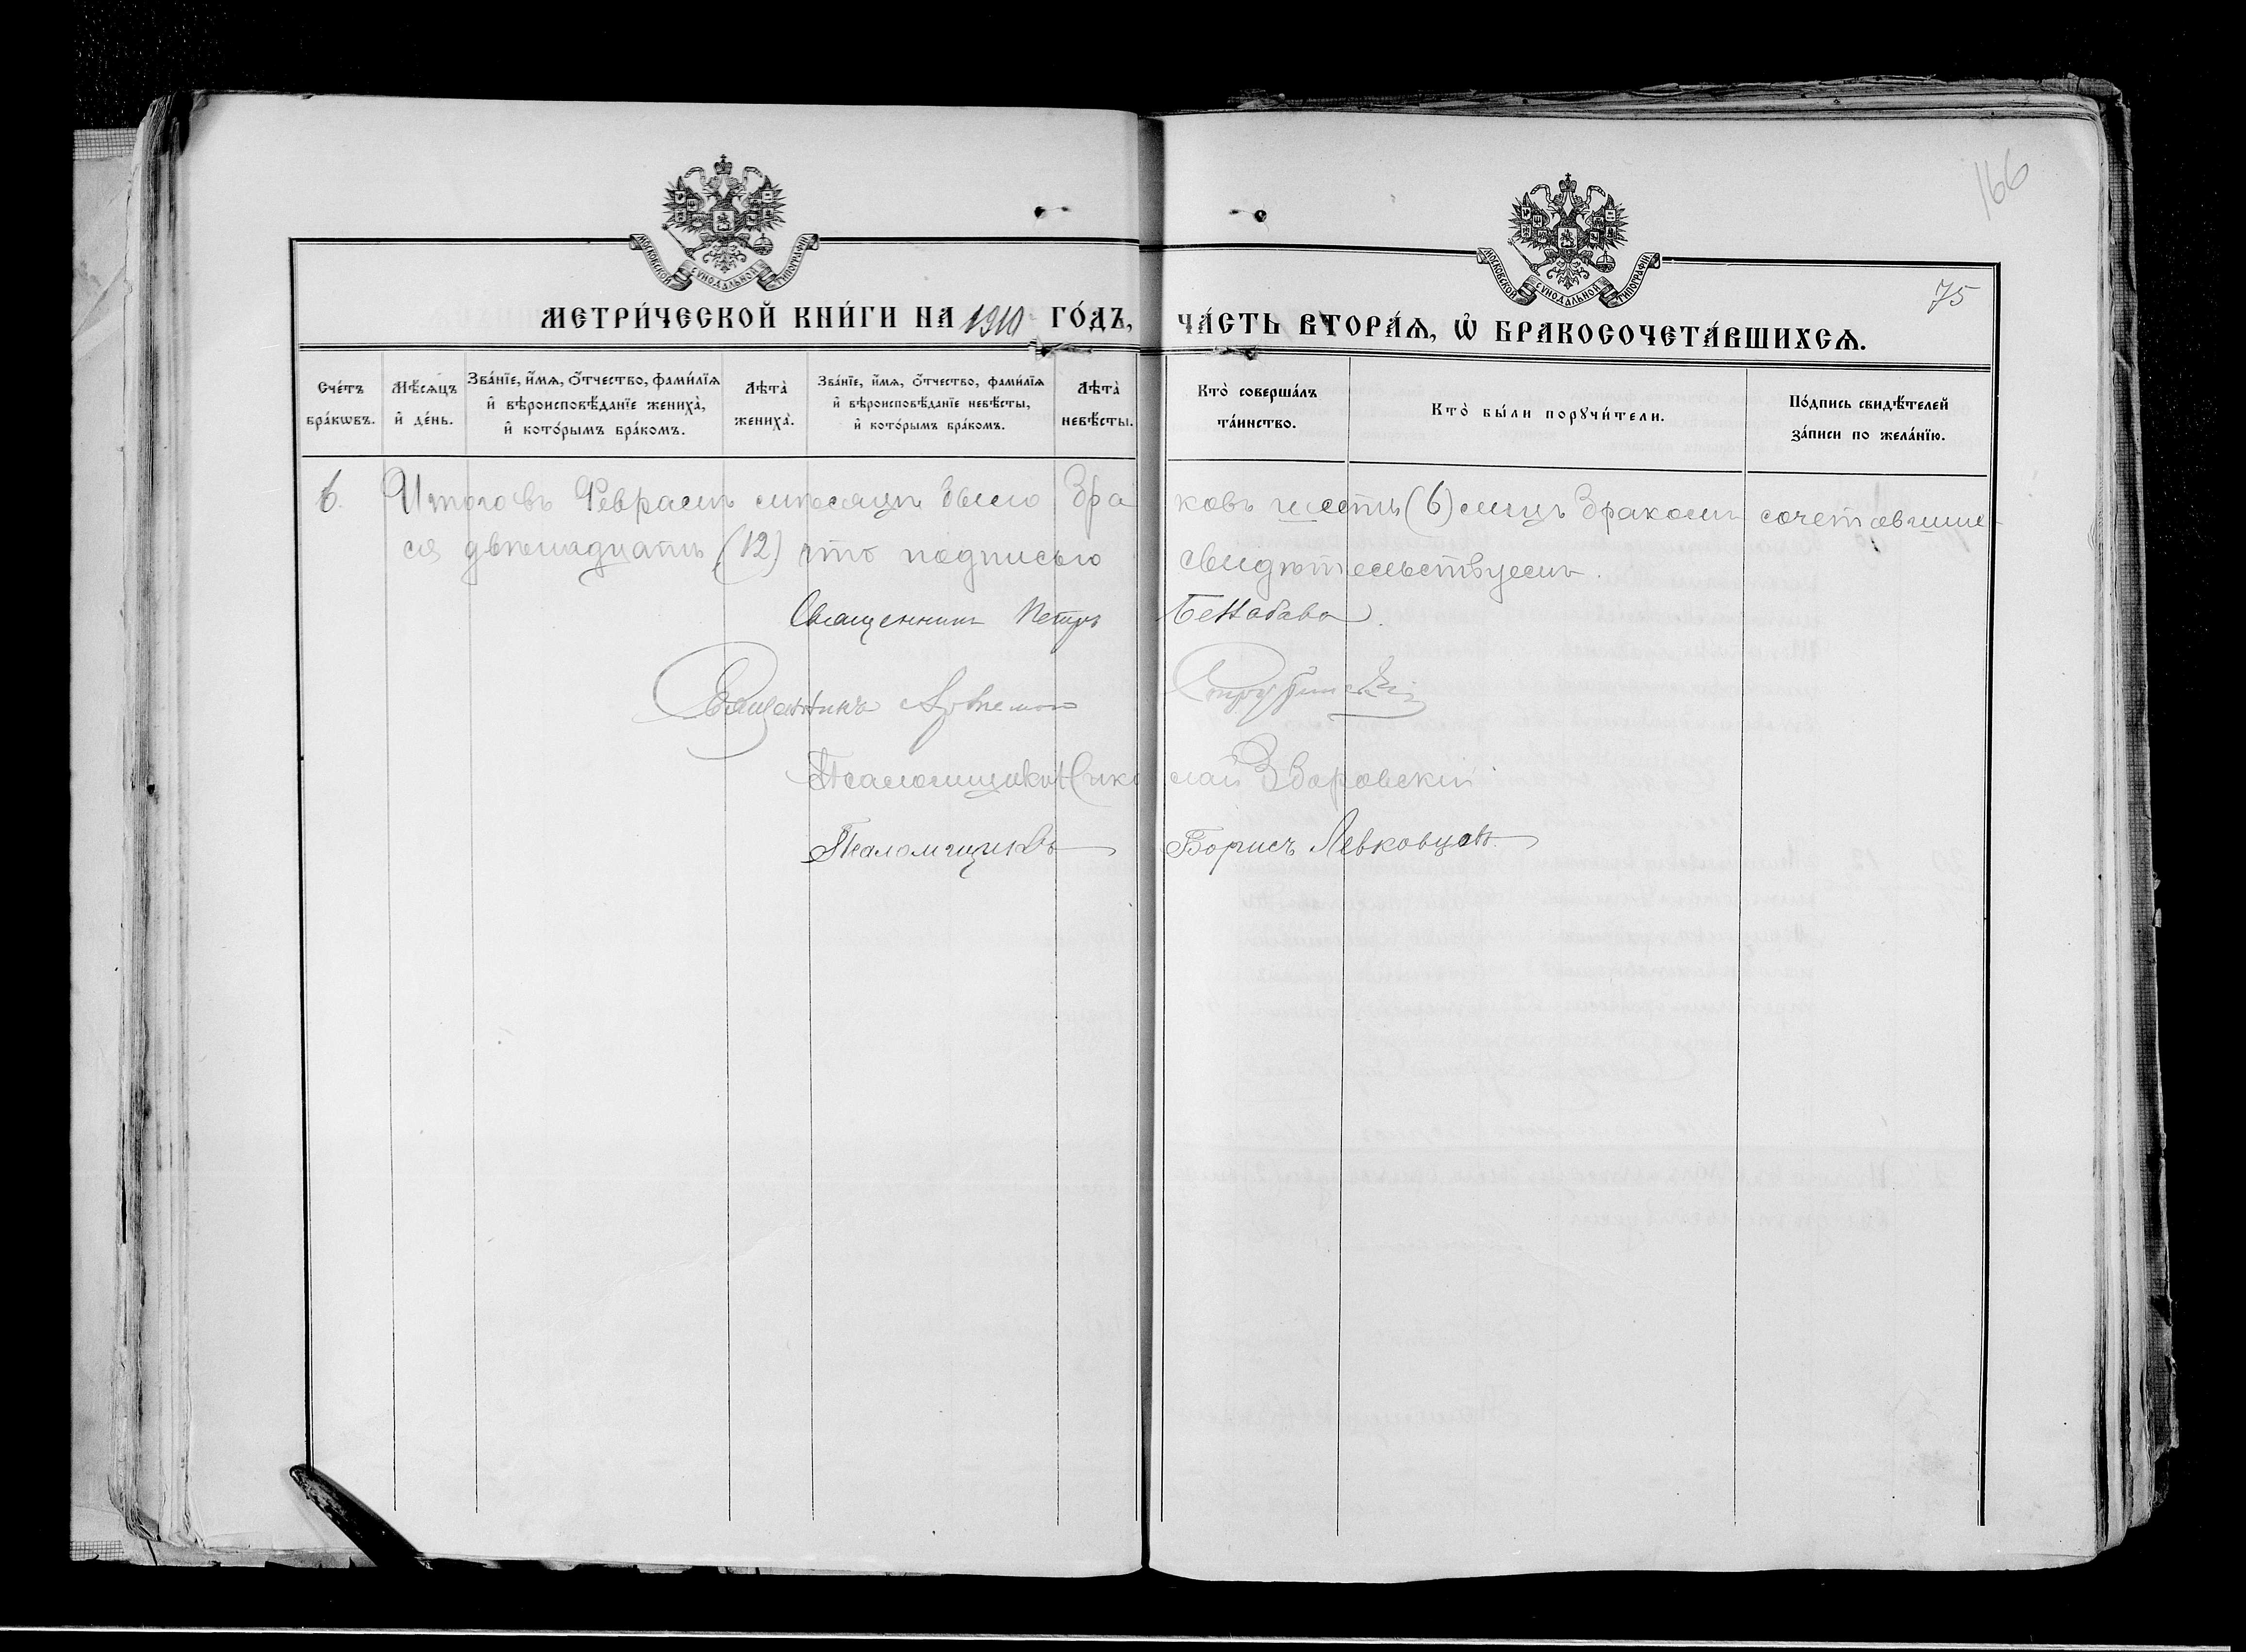 166
МОСКОВСКОЙ СУНОДАЛЬНОЙ ТИПОГРАФІИ
МОСКОВСКОЙ СУНОДАЛЬНОЙ ТИПОГРАФІИ
75
МЕТРИ́ЧЕСКОЙ КНИ́ГИ НА 1910 ГО́ДЪ, ЧА́СТЬ ВТОРА́Ѧ, Ѡ҆ БРАКОСОЧЕТА́ВШИХСѦ.
Сче́тъ бра́кѡвъ.
Мѣ́сѧцъ и҆ де́нь.
Зва́нїе, и҆́мѧ, ѻ҆́тчество, фами́лїѧ и҆ вѣроисповѣ́данїе жениха̀, и҆ кото́рымъ бра́комъ.
Лѣта̀ жениха̀.
Зва́нїе, и҆́мѧ, ѻ҆́тчество, фами́лїѧ и҆ вѣроисповѣ́данїе невѣ́сты, и҆ кото́рымъ бра́комъ.
Лѣта̀ невѣ́сты.
Кто̀ соверша́лъ та́инство.
Кто̀ бы́ли порꙋчи́тели.
По́дпись свидѣ́телей за́писи по жела́нїю.
6. Итого въ Февралѣ мѣсяцѣ было браковъ шесть (6) лицъ бракомъ сочетавших-
ся двѣнадцать (12) что подписью свидѣтельствуемъ.
Священникъ Петръ
Священникъ Артемій
Псаломщикъ Николай Зборовскій
Псаломщикъ Борисъ Левковцевъ.